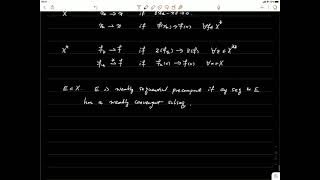 X x_n → x if ‖x_n - x‖ → 0.
x_n ⇀ x if f(x_n) → f(x) ∀ f ∈ X*
X* f_n ⇀ f if z(f_n) → z(f) ∀ z ∈ X**
f_n ⇀ f if f_n(x) → f(x) ∀ x ∈ X
E ⊂ X. E is weakly sequential precompact if any seq in E
has a weakly convergent subseq.